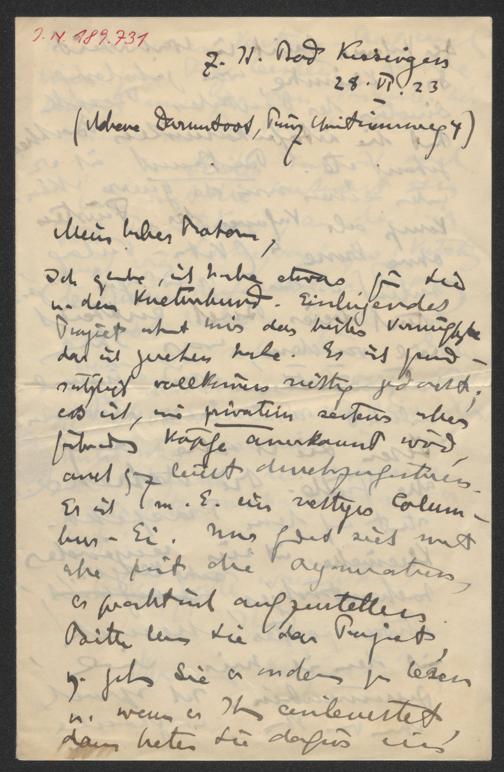 J.N. 189.731
z. Z. Bad Kissingen
28. VI. 23
(Adresse Darmstadt, Prinz Christiansweg 4)
Mein lieber
Ich glaube, ich habe etwas für Sie
u. den Kulturbund. Einliegendes
Projekt scheint mir das beste
das ich gesehen habe. Es ist grund-
sätzlich vollkommen richtig gedacht;
es ist, wie privatim seitens aller
führenden Köpfe anerkannt wird,
auch ganz leicht durchzuführen.
Es ist m. E. ein richtiges Colum-
bus-Ei. Nun findet sich nicht
die Organisation,
es praktisch aufzustellen.
Bitte lesen Sie das Projekt,
u. geben Sie es andern zu lesen
u. wenn es Ihnen einleuchtet,
dann treten Sie dafür ein!